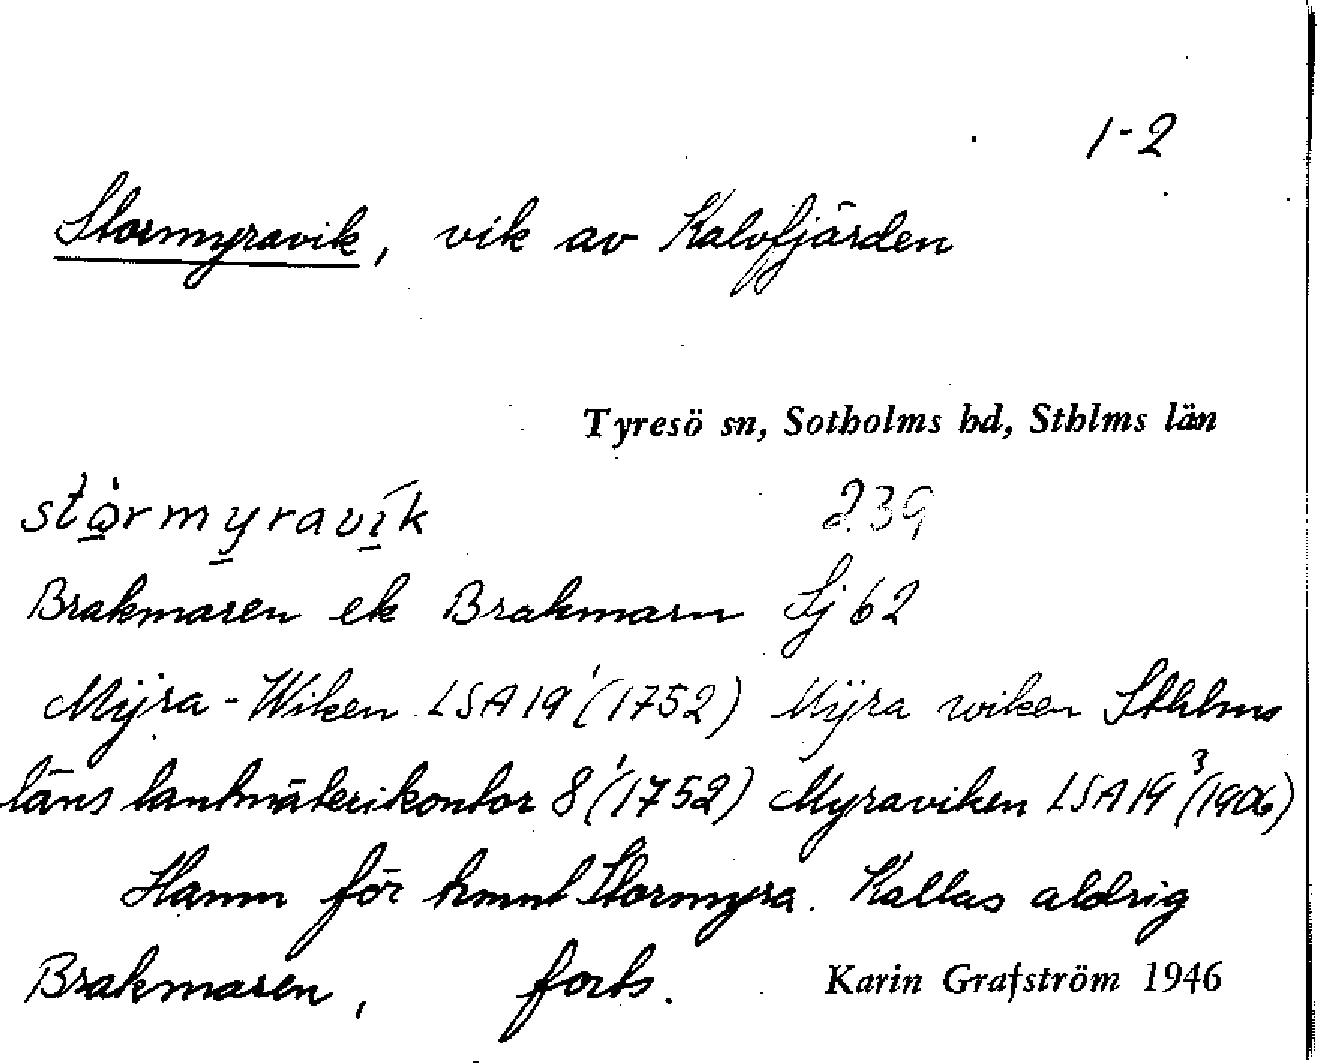 1-2
Stormyravik, vik av Kalvfjärden
Tyresö sn, Sotholms hd, Sthlms län
stormyravik 239
Brakmaren ek Brakmarn Sj 62
Mÿra-Wiken LSA 19¹(1752) Mÿra wiken Sthlms
läns lantmäterikontor 8¹(1752) Myraviken LSA 19³(1906)
Hamn för hmnt Stormyra. Kallas aldrig
Brakmaren, forts. Karin Grafström 1946